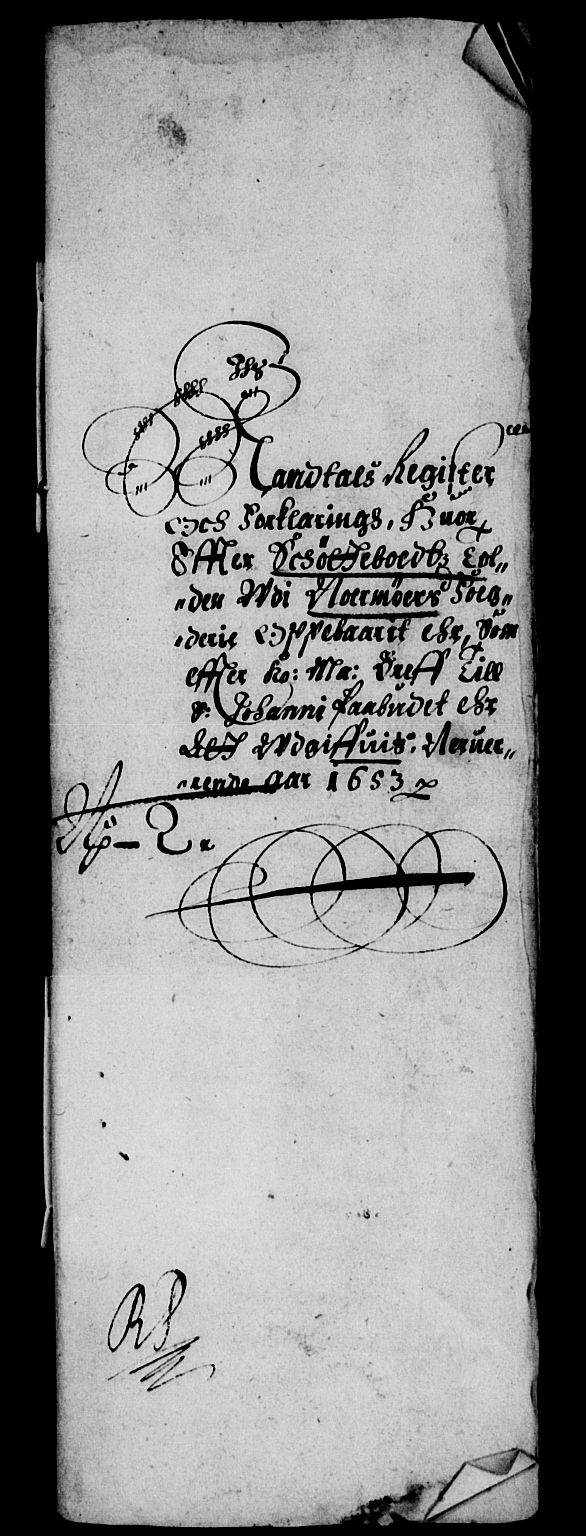 Mandtals Register
och Forklarings, Huor
Effter Schötteboedtz Tol,,
,,den Udi Noermöers Foeg,,
,,derie Oppebaarit ehr, Som
effter Ko: Ma: Breff Till
S: Johanni Paabudet ehr
Rett Udgiffuis. Neruer,,
,,rende Aar 1653
No - 2.
RP